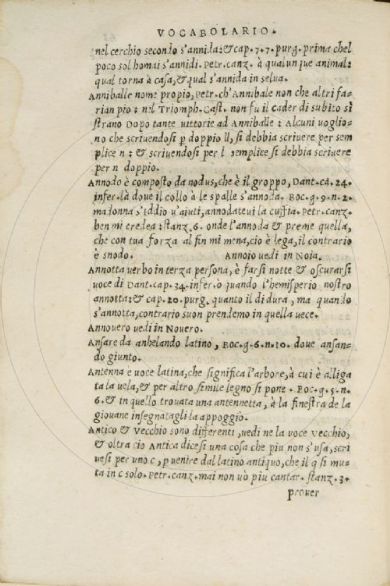 VOCABOLARIO.
nel cerchio secondo s'annida: & cap. 7. 7. purg. prima chel
poco sol homai s'annidi. Petr. canz. à qualunque animal:
qual torna à casa, & qual s'annida in selva.
Anniballe nome proprio, Petr. ch'Annibale non che altri fa-
rian pio: nel Triomph. Cast. non fu il cader di subito sì
strano Dopo tante uittorie ad Anniballe: Alcuni uoglio-
no che scriuendosi p doppio ll, si debbia scriuere per sem
plice n: & scriuendosi per l semplice si debbia scriuere
per n doppio.
Annodo è composto da nodus, che è il groppo, Dant. ca. 24.
infer. là doue il collo à le spalle s'annoda. Boc. g. 9. n. 2.
madonna s'Iddio u'aiuti, annodateui la cuffia. Petr. canz.
ben mi credea: stanz. 6. onde l'annoda & preme quella,
che con tua forza al fin mi mena, cio è lega, il contrario
è snodo. Annoio uedi in Noia.
Annotta uerbo in terza persona, è farsi notte & oscurarsi
uoce di Dant. cap. 34. infer. ò quando l'hemisperio nostro
annotta: & cap. 20. purg. quanto il dì dura, ma quando
s'annotta, contrario suon prendemo in quella uece.
Annouero uedi in Nouero.
Ansare da anhelando latino, Boc. g. 6. n. 10. doue ansan-
do giunto.
Antenna è uoce latina, che significa l'arbore, à cui è alliga
ta la uela, & per altro simile legno si pone. Boc. g. 5. n.
6. & in quello trouata una antennetta, à la finestra de la
giouane insegnatagli la appoggio.
Antico & Vecchio sono differenti, uedi ne la uoce Vecchio,
& oltra cio Antica dicesi una cosa che piu non s'usa, scri
uesi per uno c, puenire dal latino antiquo, che il q si mu-
ta in c solo. Petr. canz. mai non uò piu cantar. stanz. 3.
prouer